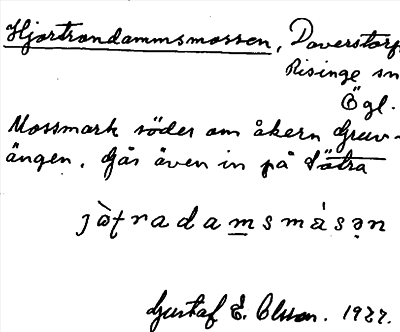 Hjortrondammsmossen, Doverstorps
Risinge sn
Ögl.
Mossmark söder om åkern Gruv-
ängen. Går även in på Sätra
Gustaf E. Olsson. 1927.